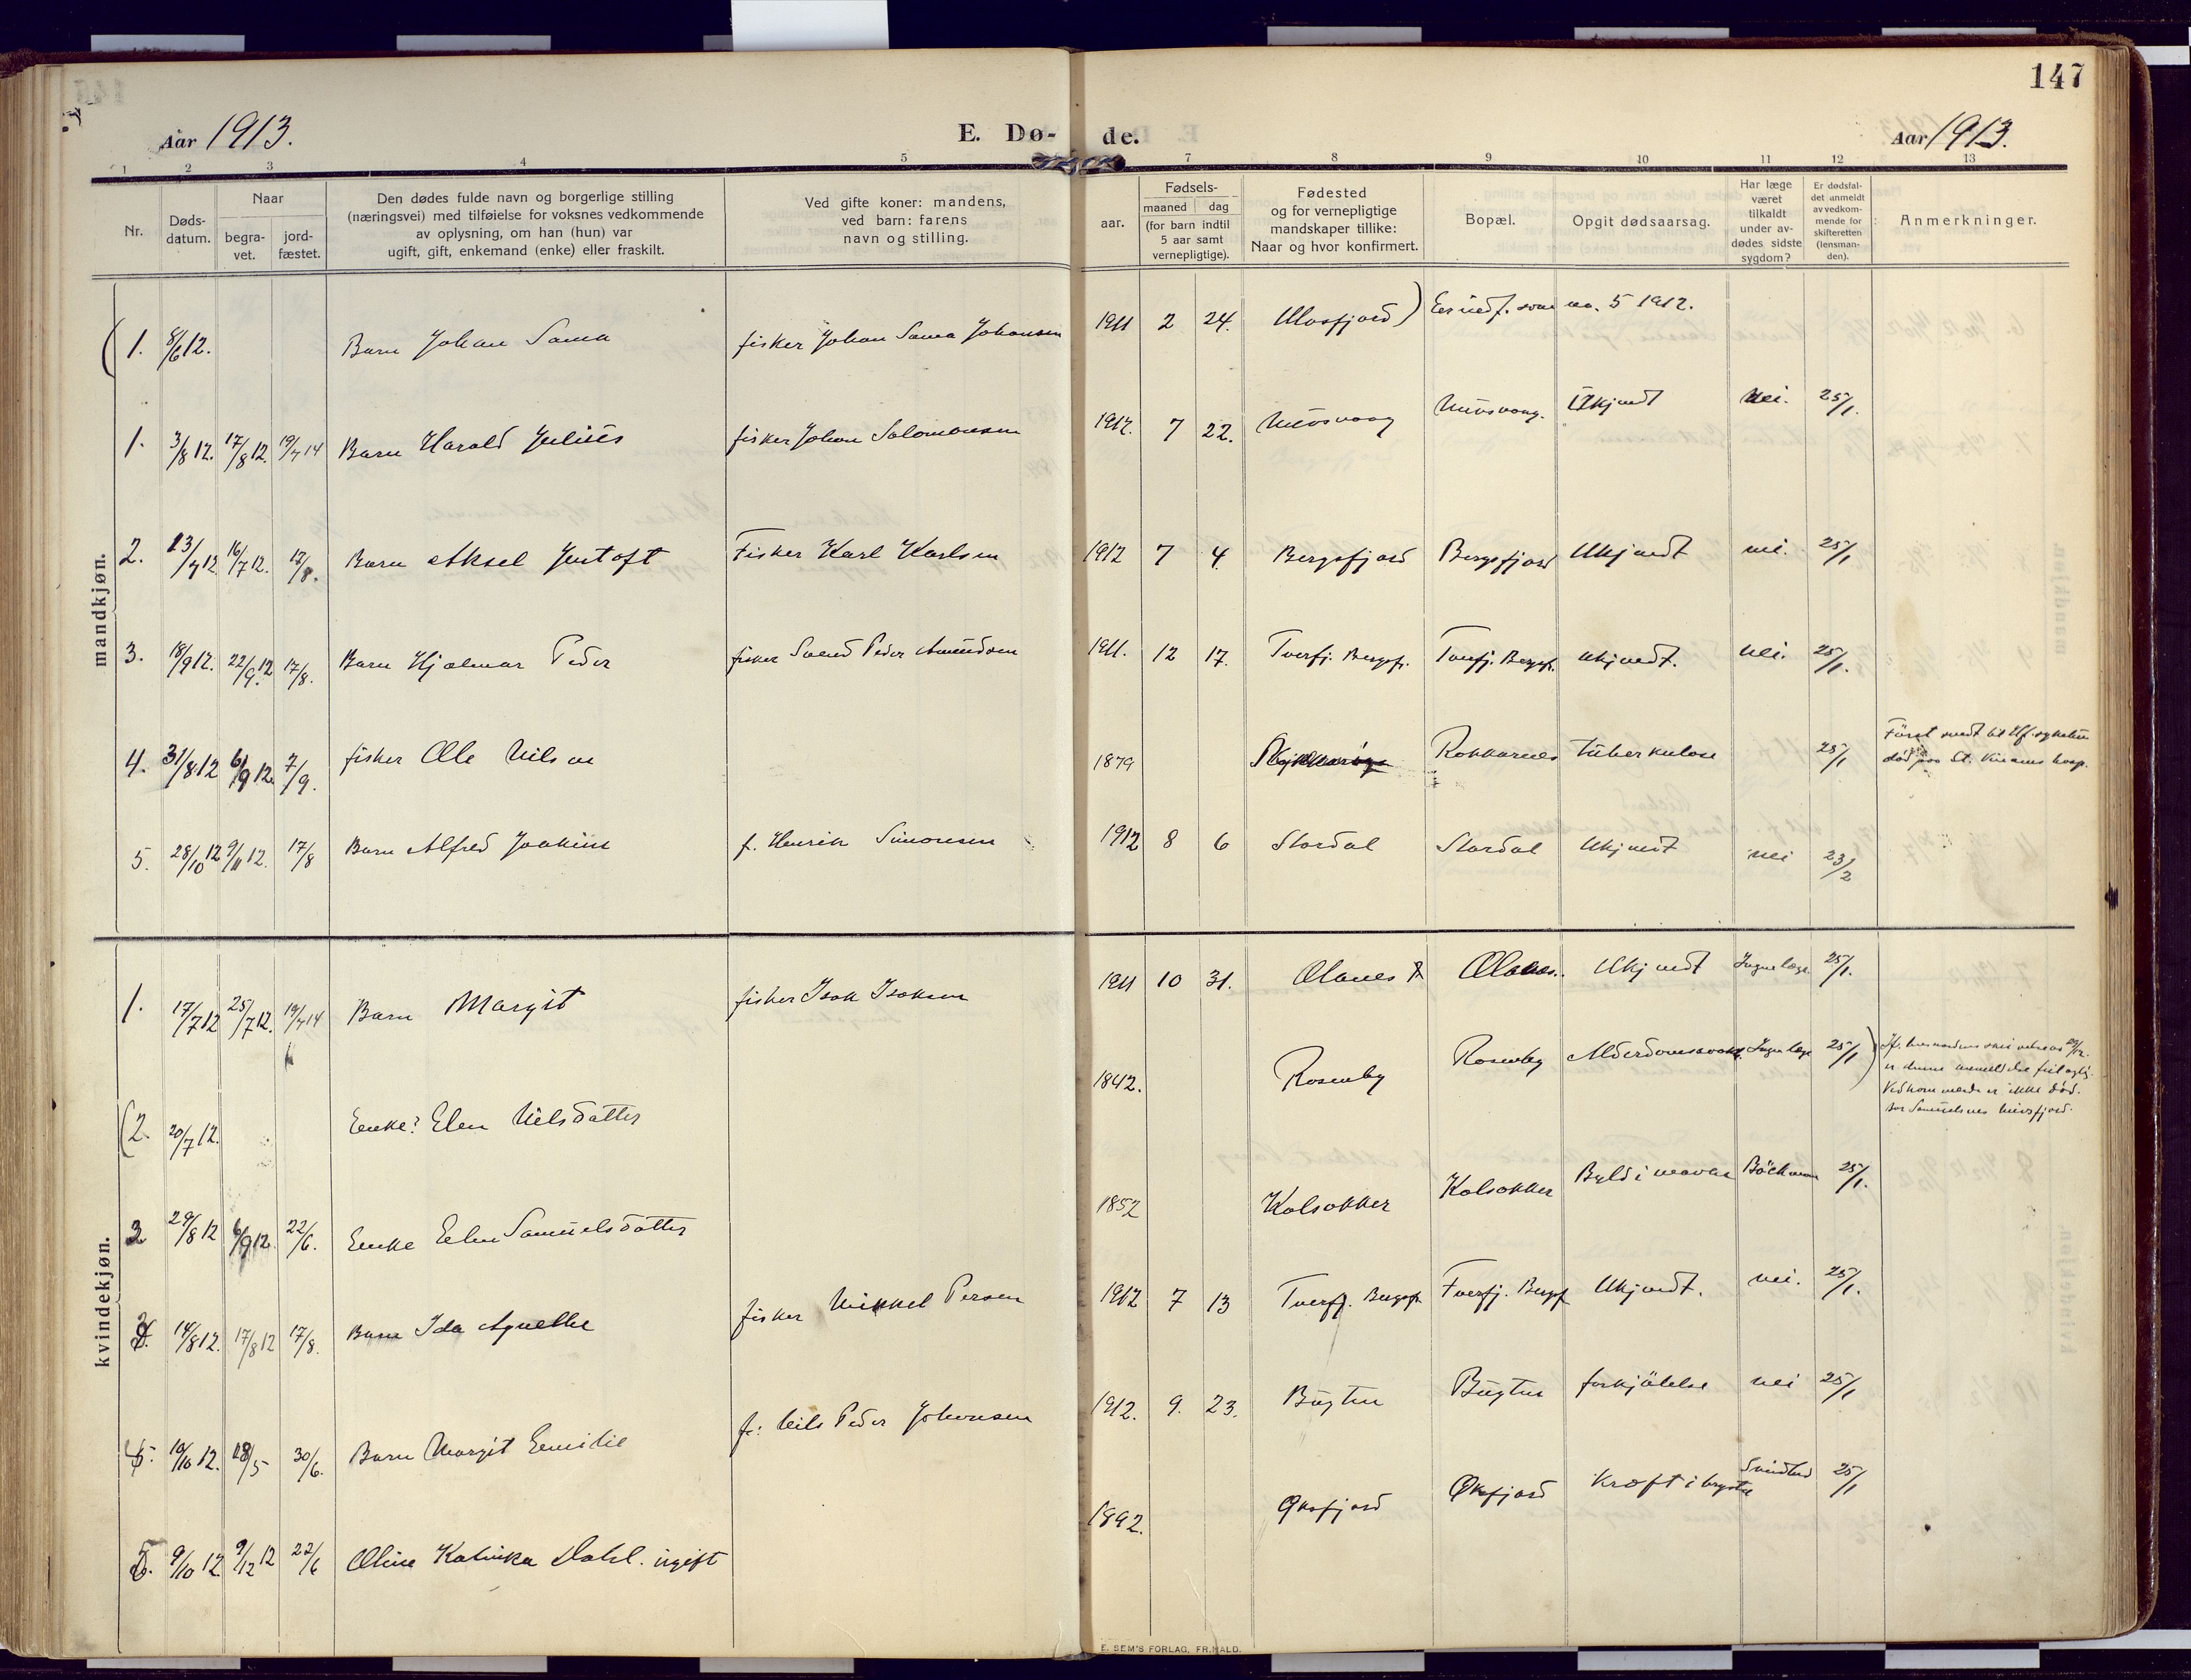 147
Aar 1913. E. Dø- de. Aar 1913.
1 2 3 4 5 7 8 9 10 11 12 13
Nr.
Døds-
datum.
Naar
begra-
vet.
jord-
fæstet.
Den dødes fulde navn og borgerlige stilling
(næringsvei) med tilføielse for voksnes vedkommende
av oplysning, om han (hun) var
ugift, gift, enkemand (enke) eller fraskilt.
Ved gifte koner: mandens,
ved barn: farens
navn og stilling.
aar.
Fødsels-
maaned dag
(for barn indtil
5 aar samt
vernepligtige).
Fødested
og for vernepligtige
mandskaper tillike:
Naar og hvor konfirmert.
Bopæl.
Opgit dødsaarsag.
Har læge
været
tilkaldt
under av-
dødes sidste
sygdom?
Er dødsfal-
det anmeldt
av vedkom-
mende for
skifteretten
(lensman-
den).
Anmerkninger.
mandkjøn.
(1. 8/6 12. Barn Johan Sama fisker Johan Sama Johansen 1911 2 24. Ulvsfjord) Er indf. som no. 5 1912.
1. 3/8 12. 17/8 12. 19/7 14 Barn Harold Julius fisker Johan Salomonsen 1912. 7 22. Nuvsvaag Nuvsvaag. Ukjendt Nei. 25/1.
2. 13/7 12 16/7 12. 17/8. Barn Aksel Justoft Fisker Karl Karlsen 1912 7 4. Bergsfjord Bergsfjord Ukjendt nei. 25/1
3. 18/9 12. 22/9 12. 17/8. Barn Hjalmar Peder fisker Svend Peder Amundsen 1911. 12 17. Tverfj. Bergsfj. Tverfj. Bergsf. Ukjendt. nei. 25/1.
4. 31/8 12 6/9 12. 7/9. fisker Ole Nilsen 1879 Rokkarnes tuberkulose 25/1 sendt til sykehus
død paa St. hosp.
5. 28/10 12 9/11 12. 17/8 Barn Alfred Joakim f. Henrik Simonsen 1912 8 6 Stordal Stordal Ukjendt nei 23/2
kvindekjøn.
1. 17/7 12 25/7 12. 19/7 14 Barn Margit fisker Isak Isaksen 1911 10 31. Olanes Olanes. Ukjendt Ingen læge 25/1.
(2. 20/7 12. Enke? Elen Nilsdatter 1842. Rosenby Rosenby Alderdomssvakh. Ingen læge 25/1) Jf.
er denne anmeldelse feilagtig.
Vedkommende er ikke død.
bor Samuelsnes
2 29/8 12 6/9 12. 22/6. Enke Elen Samuelsdatter 1852 Kolsokker Kolsokker Byld i maven Böckman 25/1.
3. 14/8 12. 17/8 12 17/8. Barn Ida Agnethe fisker Mikkel Persen 1912 7 13 Tverfj. Bergsfj. Tverfj. Bergsf. Ukjendt. nei. 25/1.
4. 19/10 12. 18/5 30/6. Barn Margit Emilie f: Nils Peder Johansen 1912. 9. 23. Bugten Bugten forkjölelse nei 25/1
5. 9/10 12. 9/12 12 22/6 Oline Katinka Dahl. ugift 1892. Øksfjord Øksfjord Kræft i brystet 25/1
E. SEM'S FORLAG, FR.HALD.